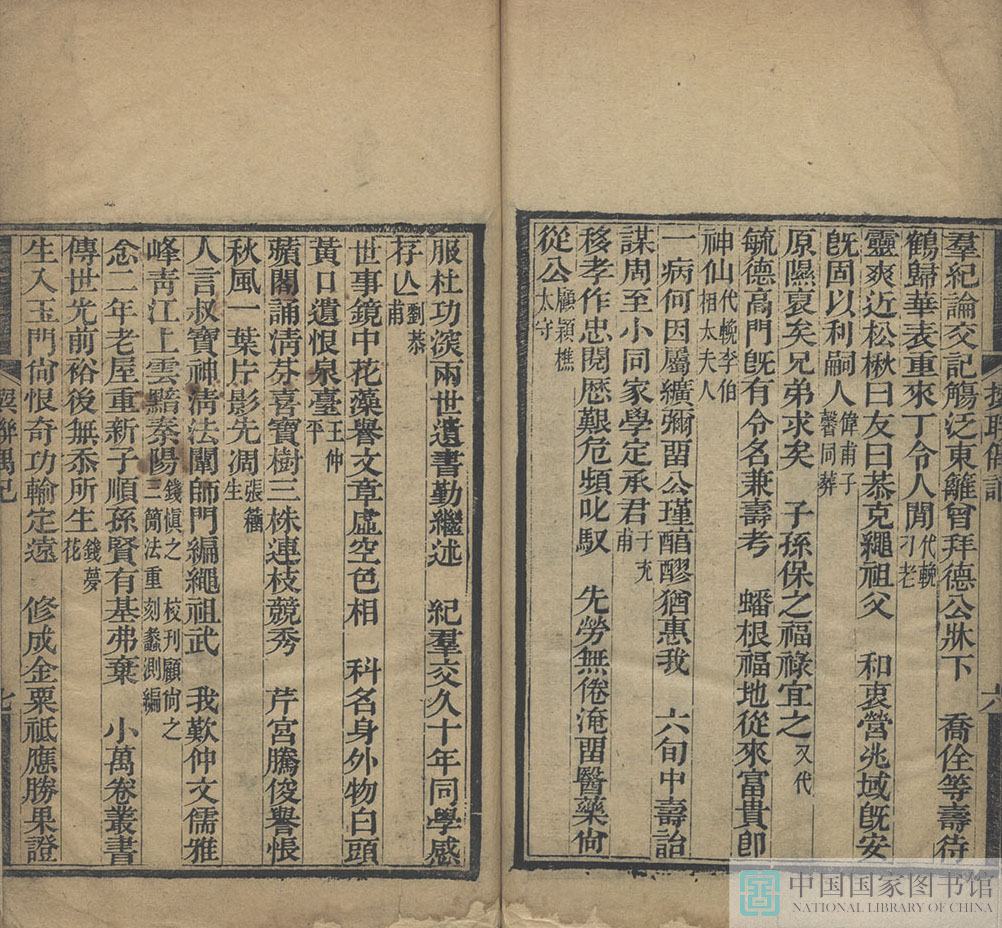 羣紀論交記觴泛東籬曾拜德公牀下　喬佺等壽待
鶴歸華表重來丁令人閒代輓刁老
靈爽近松楸曰友曰恭克繩祖父　和衷營兆域旣安
旣固以利嗣人偉甫子馨同葬
原隰裒矣兄弟求矣　子孫保之福祿宜之又代
毓德高門旣有令名兼壽考　蟠根福地從來富貴卽
神仙代輓李伯相太夫人
一病何因屬纊彌畱公瑾醕醪猶惠我　六旬中壽詒
謀周至小同家學定承君于充甫
移孝作忠閱歷艱危頻叱馭　先勞無倦淹畱醫藥尙
從公顧穎樵太守
六
服杜功深兩世遺書勤繼述　紀羣交久十年同學感
存亾劉恭甫
世事鏡中花藻譽文章虛空色相　科名身外物白頭
黃口遺恨泉臺王仲平
蘋閣誦淸芬喜寶樹三株連枝競秀　芹宮騰俊譽悵
秋風一葉片影先凋張蘊生
人言叔寶神淸法闡師門編繩祖武　我歎仲文儒雅
峰靑江上雲黯秦陽錢愼之　校刊顧尙之三簡法重刻蠡測編
念二年老屋重新子順孫賢有基弗棄　小萬卷叢書
傳世光前裕後無忝所生錢夢花
生入玉門尙恨奇功輸定遠　修成金粟祗應勝果證
聯偶記
七
中国国家图书馆
NATIONAL LIBRARY OF CHINA